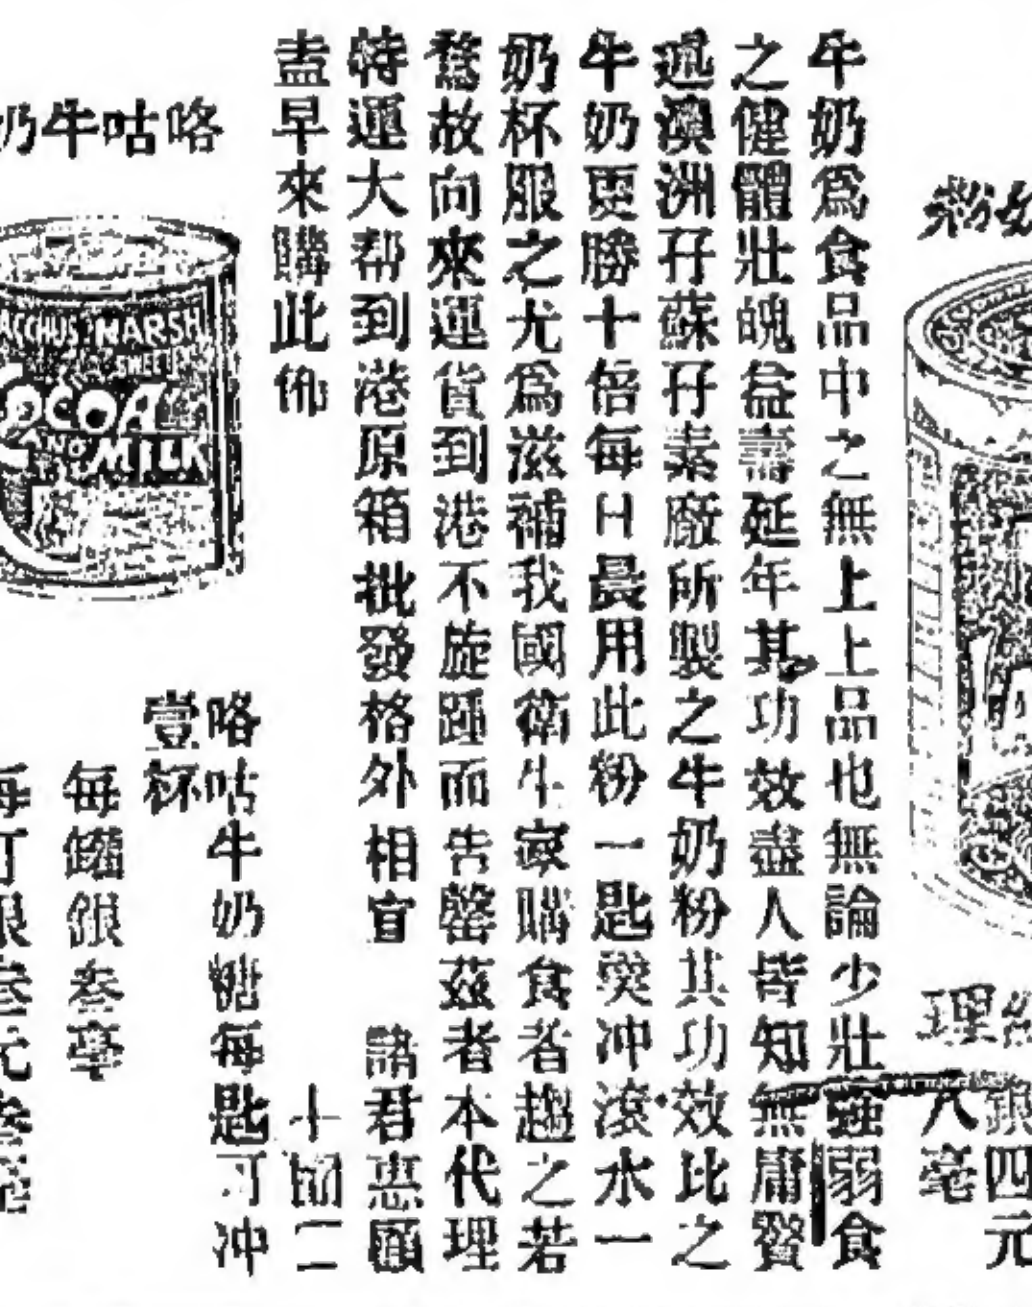 理
四元
八毫
牛奶為食品中之無上上品也無論少壯強弱食
之健體壯魄益壽延年其功效盡人皆知無庸贅
述澳洲孖蘇孖素廠所製之牛奶粉其功效比之
牛奶更勝十倍每日晨用此粉一匙羮冲滚水一
奶杯服之尤為滋補我國衛生家購食者趨之若
鶩故向來運貨到港不旋踵而告罄茲者本代理
特運大帮到港原箱批發格外相宜 諸君惠顧
盍早來購此佈
咭牛奶
ACCHUS MARSH
COCOA
AND MILK
牛奶糖每匙可冲
壹杯
每罐銀叁毫